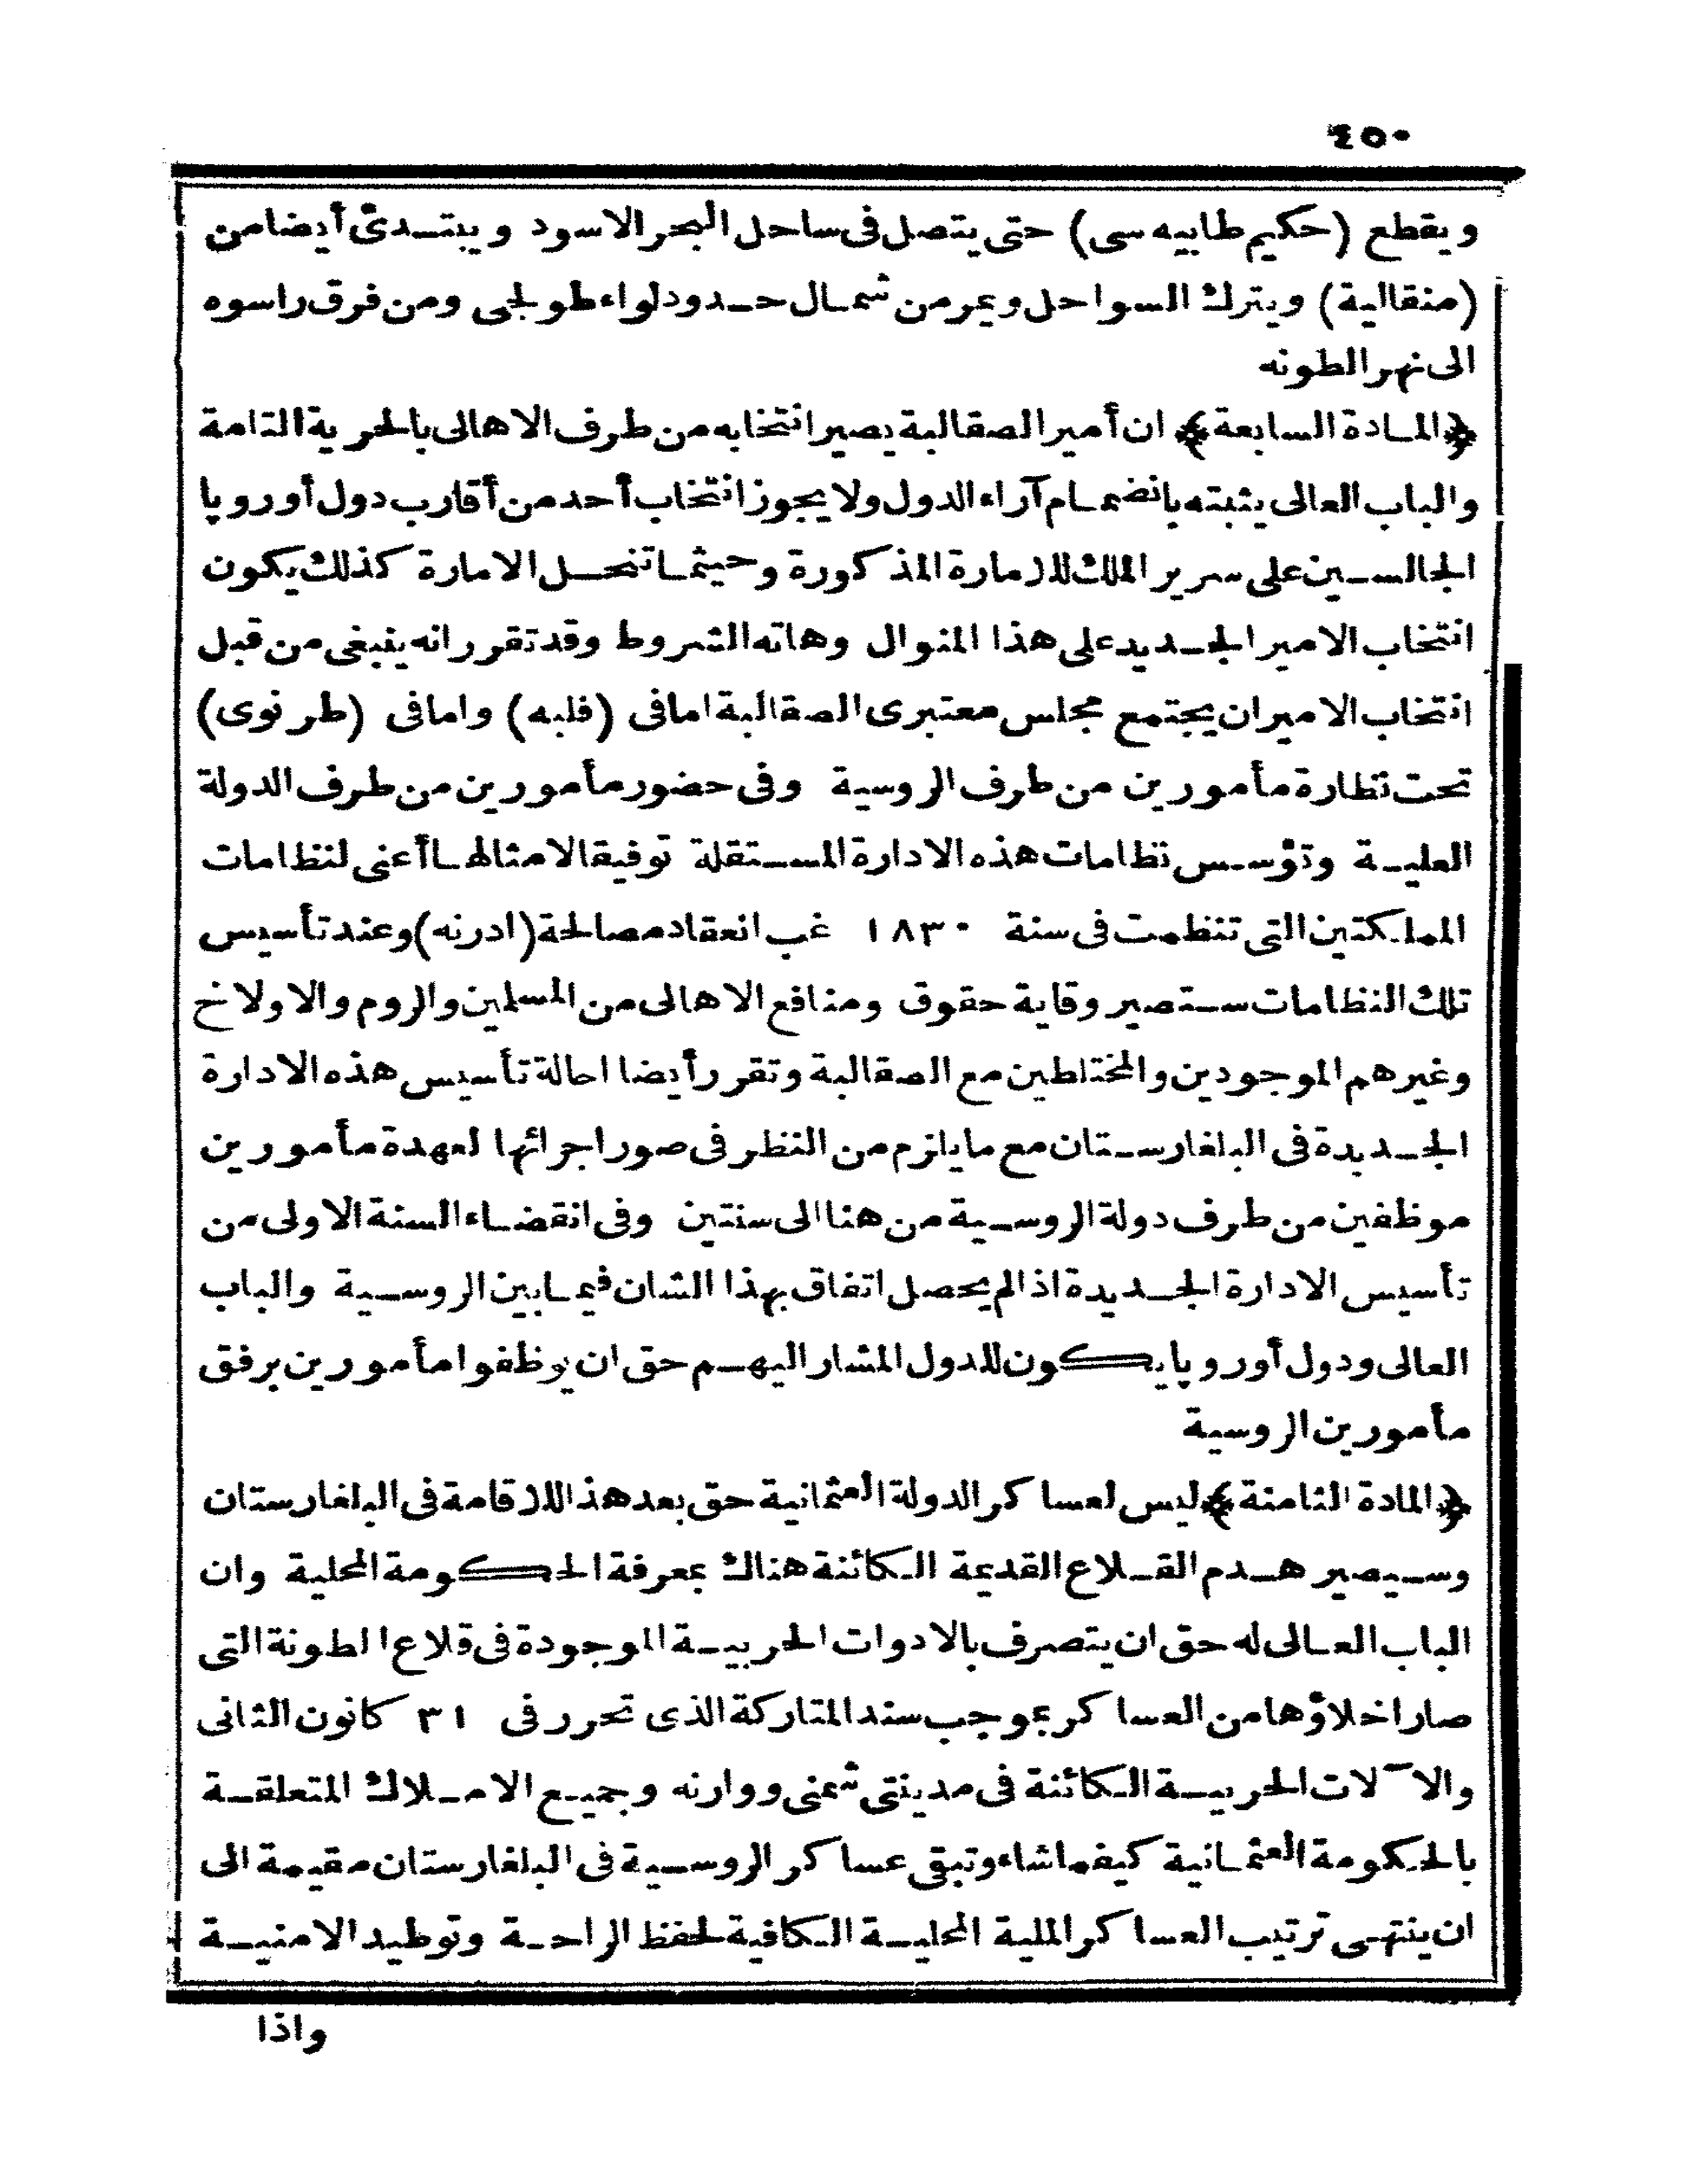 ٤٥٠
ويقطع (حكيم طابيه سى) حتى يتصل فى ساحل البحر الاسود ويبتدئ أيضا من
(منقالية) ويترك السواحل ويمر من شمال حدود لواء طولجى ومن فرق راسوه
الى نهر الطونه
﴿المادة السابعة﴾ ان أمير الصقالبة يصير انتخابه من طرف الاهالى بالحرية التامة
والباب العالى يثبته بانضمام آراء الدول ولا يجوز انتخاب أحد من أقارب دول أوروپا
الجالسين على سرير الملك للامارة المذكورة وحيثما تنحل الامارة كذلك يكون
انتخاب الامير الجديد على هذا المنوال وهاته الشروط وقد تقرر انه ينبغى من قبل
انتخاب الامير ان يجتمع مجلس معتبرى الصقالبة اما فى (فلبه) واما فى (طرنوى)
تحت نظارة مأمورين من طرف الروسية وفى حضور مأمورين من طرف الدولة
العلية وتؤسس نظامات هذه الادارة المستقلة توفيقا لامثالها أعنى لنظامات
المملكتين التى تنظمت فى سنة ١٨٣٠ غب انعقاد مصالحة (ادرنه) وعند تأسيس
تلك النظامات ستصير وقاية حقوق ومنافع الاهالى من المسلمين والروم والاولاخ
وغيرهم الموجودين والمختلطين مع الصقالبة وتقرر أيضا احالة تأسيس هذه الادارة
الجديدة فى البلغارستان مع ما يلزم من النظر فى صور اجرائها لعهدة مأمورين
موظفين من طرف دولة الروسية من هنا الى سنتين وفى انقضاء السنة الاولى من
تأسيس الادارة الجديدة اذا لم يحصل اتفاق بهذا الشان فيما بين الروسية والباب
العالى ودول أوروپا يكون للدول المشار اليهم حق ان يوظفوا مأمورين برفق
مأمورين الروسية
﴿المادة الثامنة﴾ ليس لعساكر الدولة العثمانية حق بعد هذا للاقامة فى البلغارستان
وسيصير هدم القلاع القديمة الكائنة هناك بمعرفة الحكومة المحلية وان
الباب العالى له حق ان يتصرف بالادوات الحربية الموجودة فى قلاع الطونة التى
صار اخلاؤها من العساكر بموجب سند المتاركة الذى تحرر فى ٣١ كانون الثانى
والآلات الحربية الكائنة فى مدينتى شمنى ووارنه وجميع الاملاك المتعلقة
بالحكومة العثمانية كيفما شاء وتبقى عساكر الروسية فى البلغارستان مقيمة الى
ان ينتهى ترتيب العساكر الملية المحلية الكافية لحفظ الراحة وتوطيد الامنية
واذا